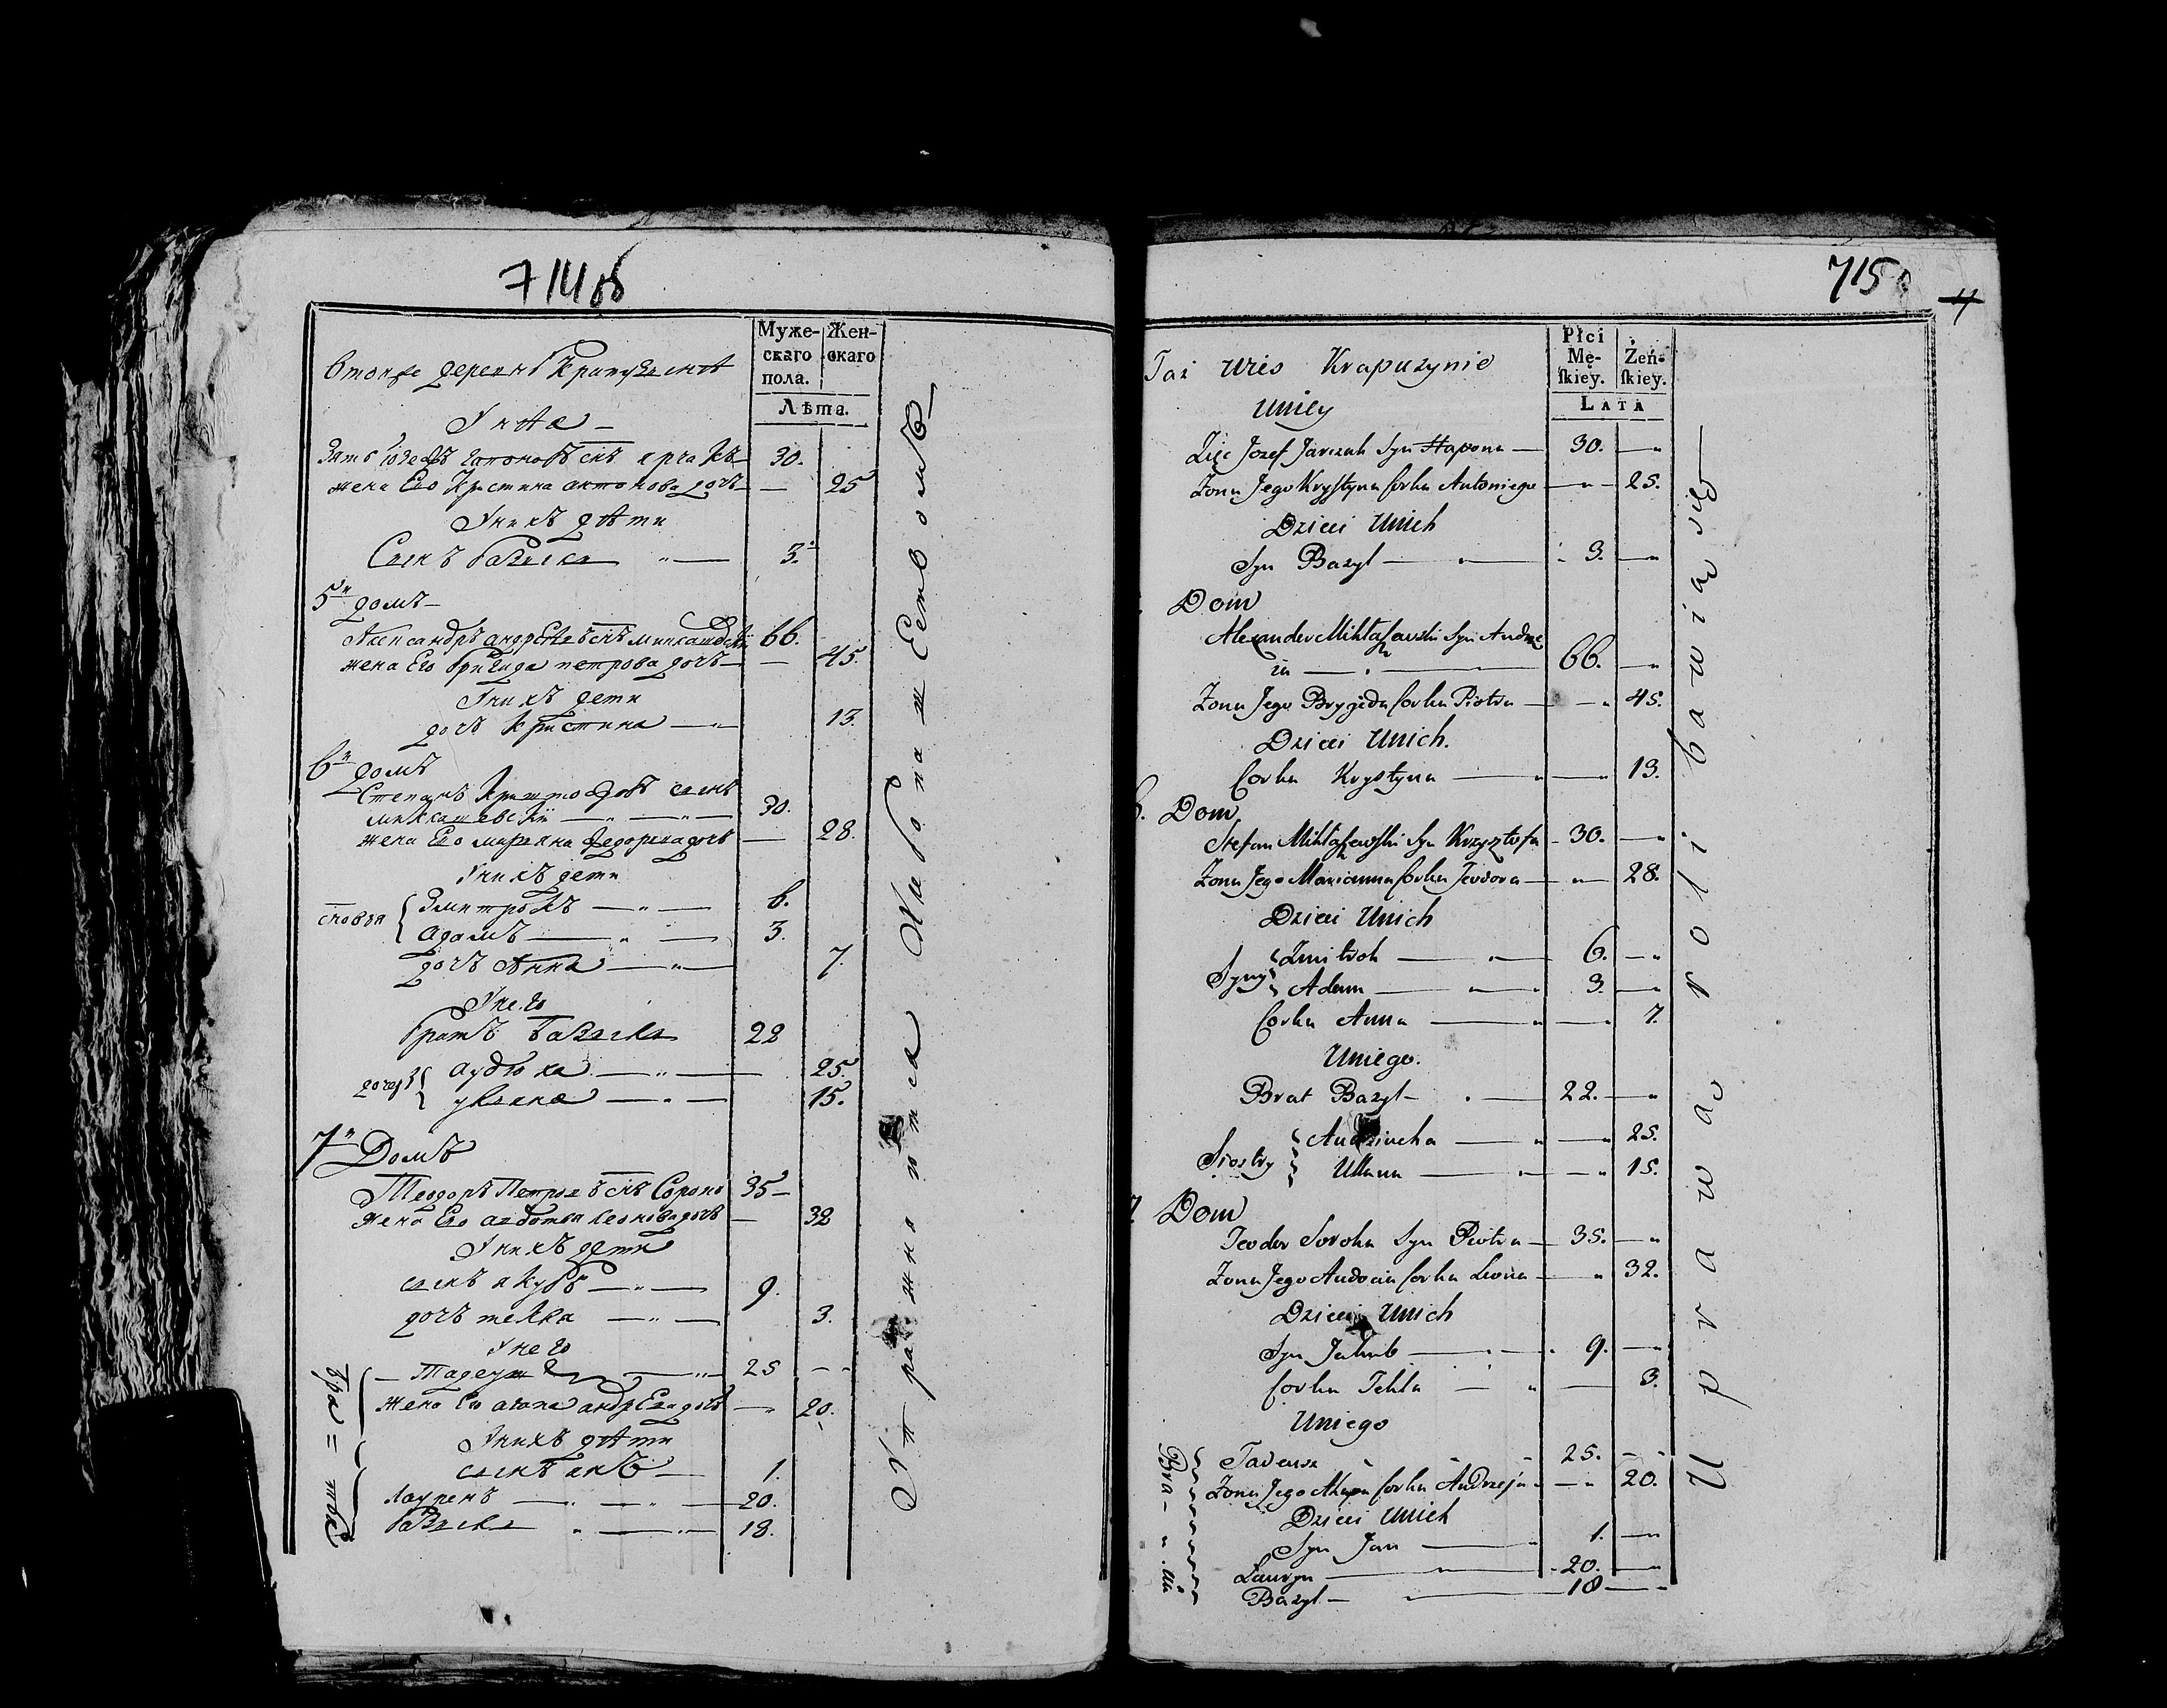 714 об
Муже-
скаго
пола.
Жен-
скаго
Лѣта.
Зять Юзефъ Гапоновъ снъ Ярчакъ 30.
жена Его Кристина антонова дочъ — 25
Унихъ дѣти
Сынъ базыли 3.
5й домъ
Александръ андреевъ снъ Миклашевскій 66.
жена Его бригида петрова дочъ — 45.
Унихъ дети
дочъ Кристина 13.
6й домъ
Степанъ Криштофовъ сынъ
миклашевскій 30.
жена Его марьяна федорова дочъ — 28.
Унихъ дети
сновья { Змитрокъ 6.
адамъ 3.
дочъ Анна 7.
Унего
братъ базыли 22
аудюха 25.
уляна 15.
7й Домъ
Теодоръ Петровъ снъ Сороко 35
жена Его авдотья леонова дочъ — 32
Унихъ дети
сынъ якубъ 9.
дочъ текля 3.
Унего
Бра = тья
Тадеушъ 25
жена Его агапа андреева дочъ 20.
Унихъ дѣти
сынъ янъ 1.
лауренъ 20.
базыли 18.
Упражняются Хлебопашествомъ
715
4
Taż Wies Krapuzynie
Płci
Mę-
skiey.
Żeń-
skiey.
LATA
Uniey
Zięc Jozef Jarczak Syn Hapona — 30.
Zona Jego Krystyna Corka Antoniego — 25.
Dzieci Unich
Syn Bazyl — 3.
Dom
Alexander Mikłaszewski Syn Andrze
ia — 66.
Zona Jego Brygida Corka Piotra — 45.
Dzieci Unich.
Corka Krystyna — 13.
6. Dom
Stefan Mikłaszewski Syn Krzysztofa — 30.
Zona Jego Marianna Corka Teodora — 28.
Dzieci Unich
Syny { Zmitrok — 6.
Adam — 3.
Corka Anna — 7.
Uniego.
Brat Bazyl — 22.
Siostry { Audziucha — 25.
Ullana — 15.
7 Dom
Teodor Soroka Syn Piotra — 35.
Zona Jego Audocia Corka Leona — 32.
Dzieci Unich
Syn Jakub — 9.
Corka Tekla — 3.
Uniego
Bra - cia
Tadeusz 25.
Zona Jego Ahapa Corka Andrzeja — 20.
Dzieci Unich
Syn Jan — 1.
Lauryn — 20.
Bazyl — 18
Uprawą roli bawią się